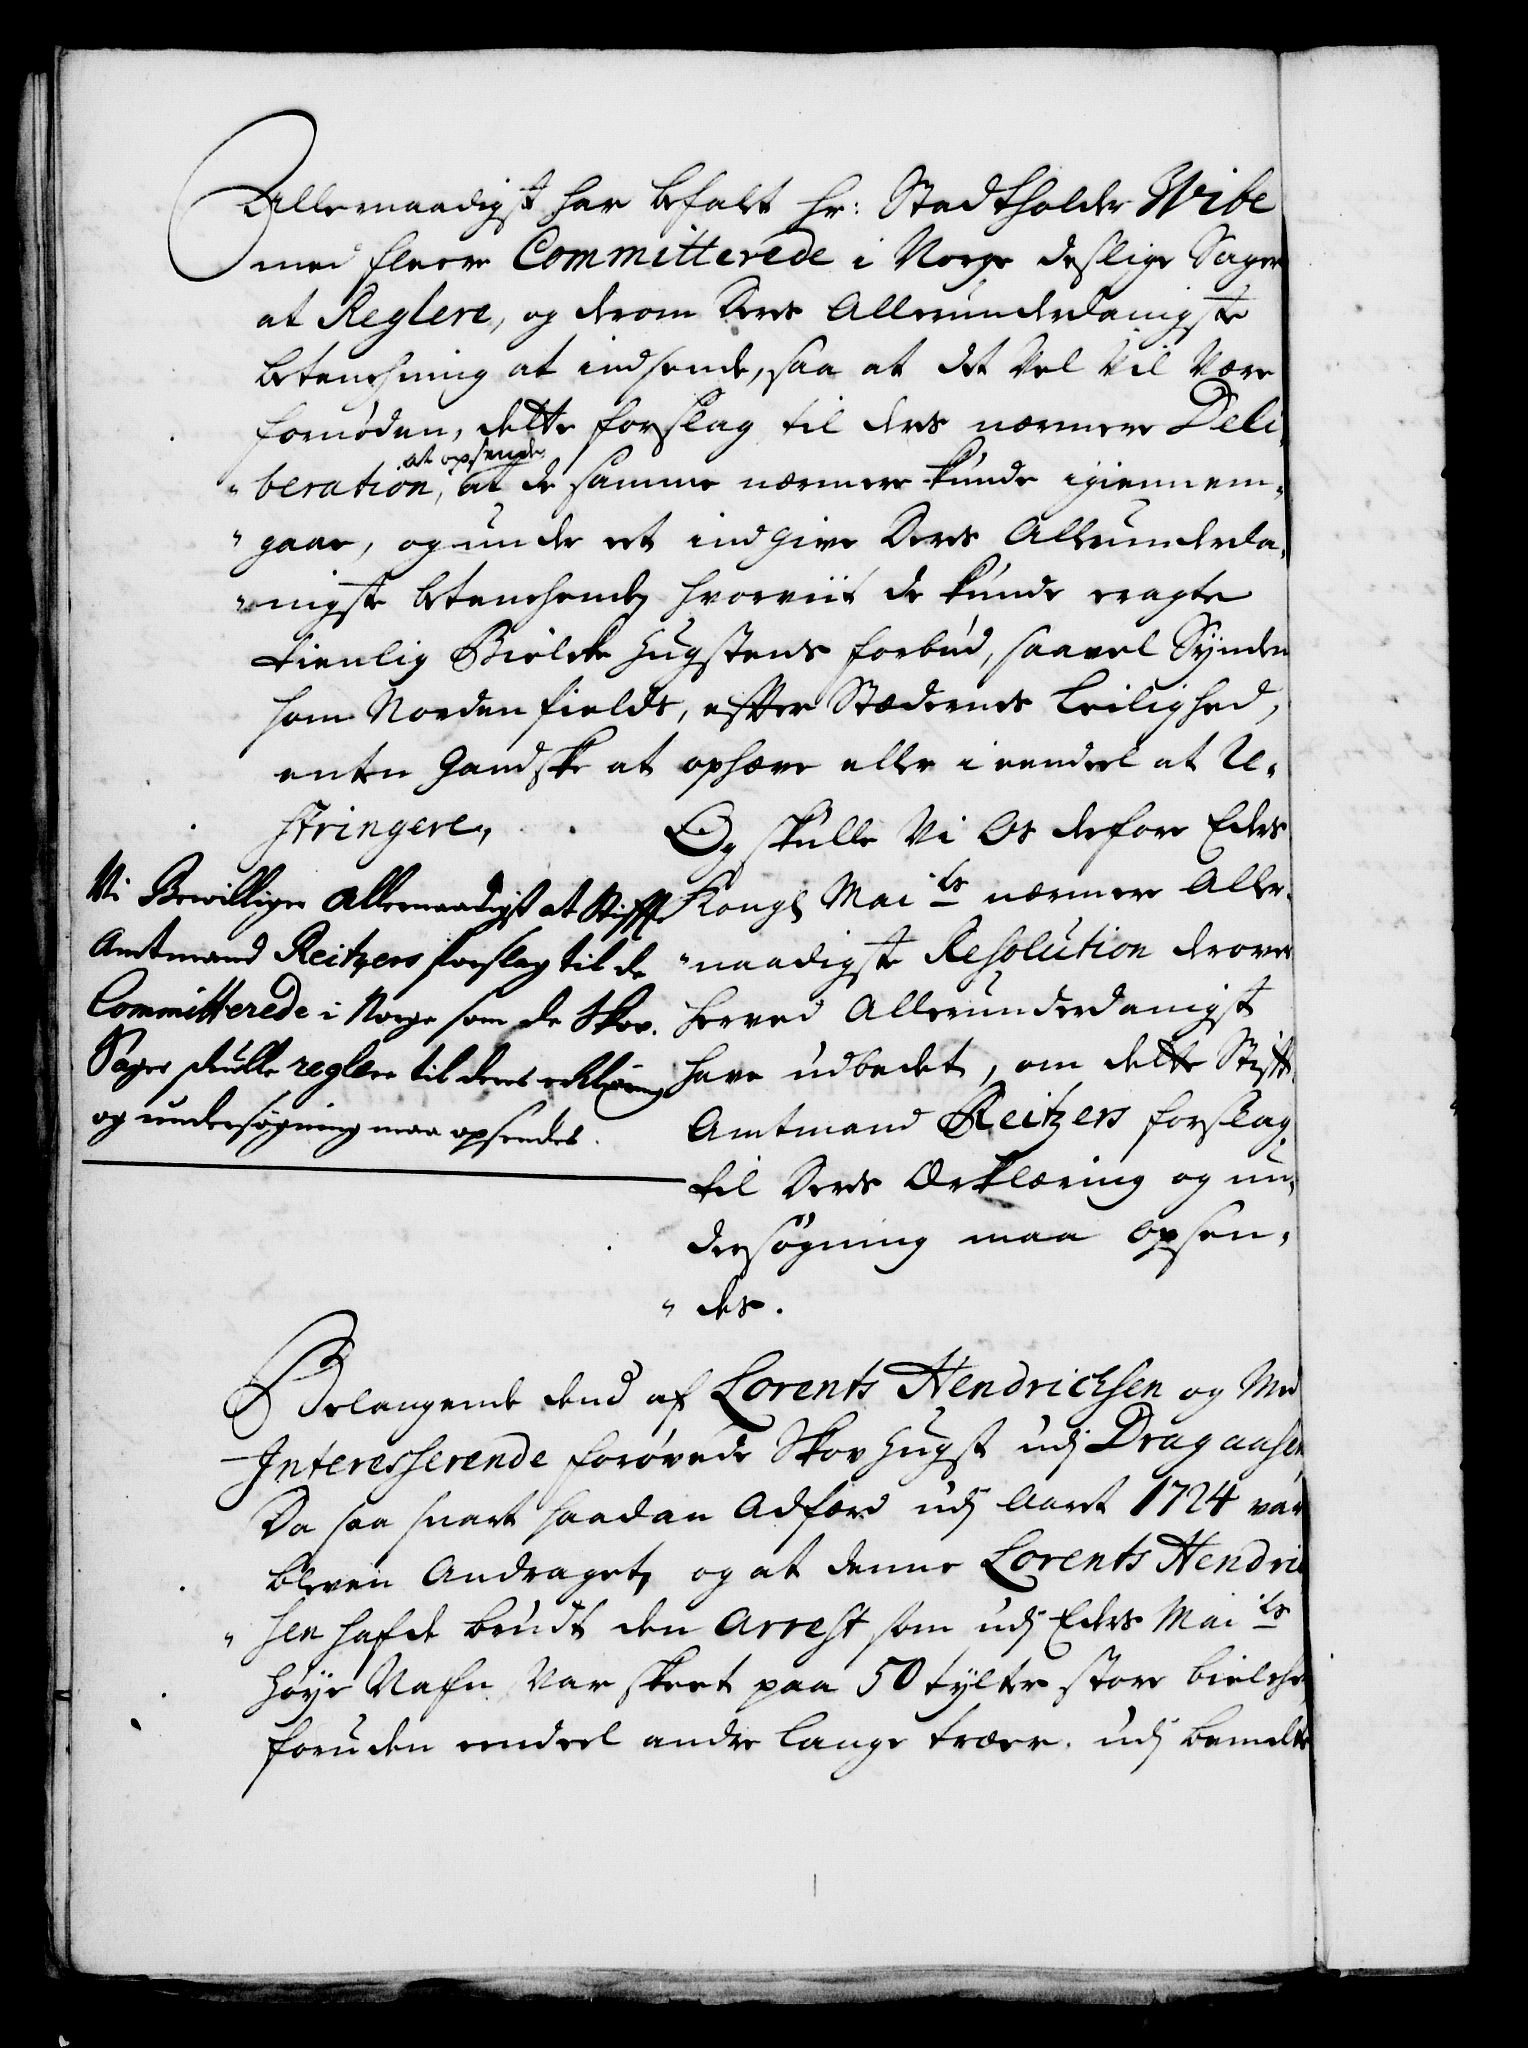 Allernaadigst har befalet Hr: Stadtholder Wibe
med fleere Committerede i Norge deslige Sager
at Reglere, og derom Deres Allerunderdanigste
betenchning at indsende, saa at det vel vil være
fornøden, dette forslag til ders nærmere Deli-
at opsende
beration, at de samme nærmere kunde igiennem-
gaae, og under eet indgive Deres Allerunderda-
nigste betenchende hvorviit de kunde eragte
tienlig Bielcke Hugstens forbud, saavel Synden
som Norden fields, efter Stædernes Leilighed,
enten Gandske at ophæve eller i eendeel at Re-
stringere,
Og skulle Vi Os derfore Eders
Kongl Mai ts nærmere Aller-
naadigste Resolution derover
herved Allerunderdanigst
have udbedet, om dette Stift-
Amtmand Reitzers forslag
til Deres Erklæring og un-
dersøgning maa opsen-
des.
Vi Bewillige allernaadigst at Stiffts
Amtmand Reitzers forslag til de
Committerede i Norge som de Skov-
Sager skulle reglere til deres erklæring
og undersøgning maa opsendes.
Belangende dend af Lorents Hendrichsen og Med
Interesserende forøvede Skov Hugst udj Dragaasen,
Da saa snart saadan Adfærd udj Aaret 1724 var
bleven Andraget, og at denne Lorents Hendric
sen hafde brudt den Arrest som udj Eders Mai ts
Høye Nafn var skeet paa 50 tylter store bielcher
foruden eendeel andre lange træer. udj bemelte